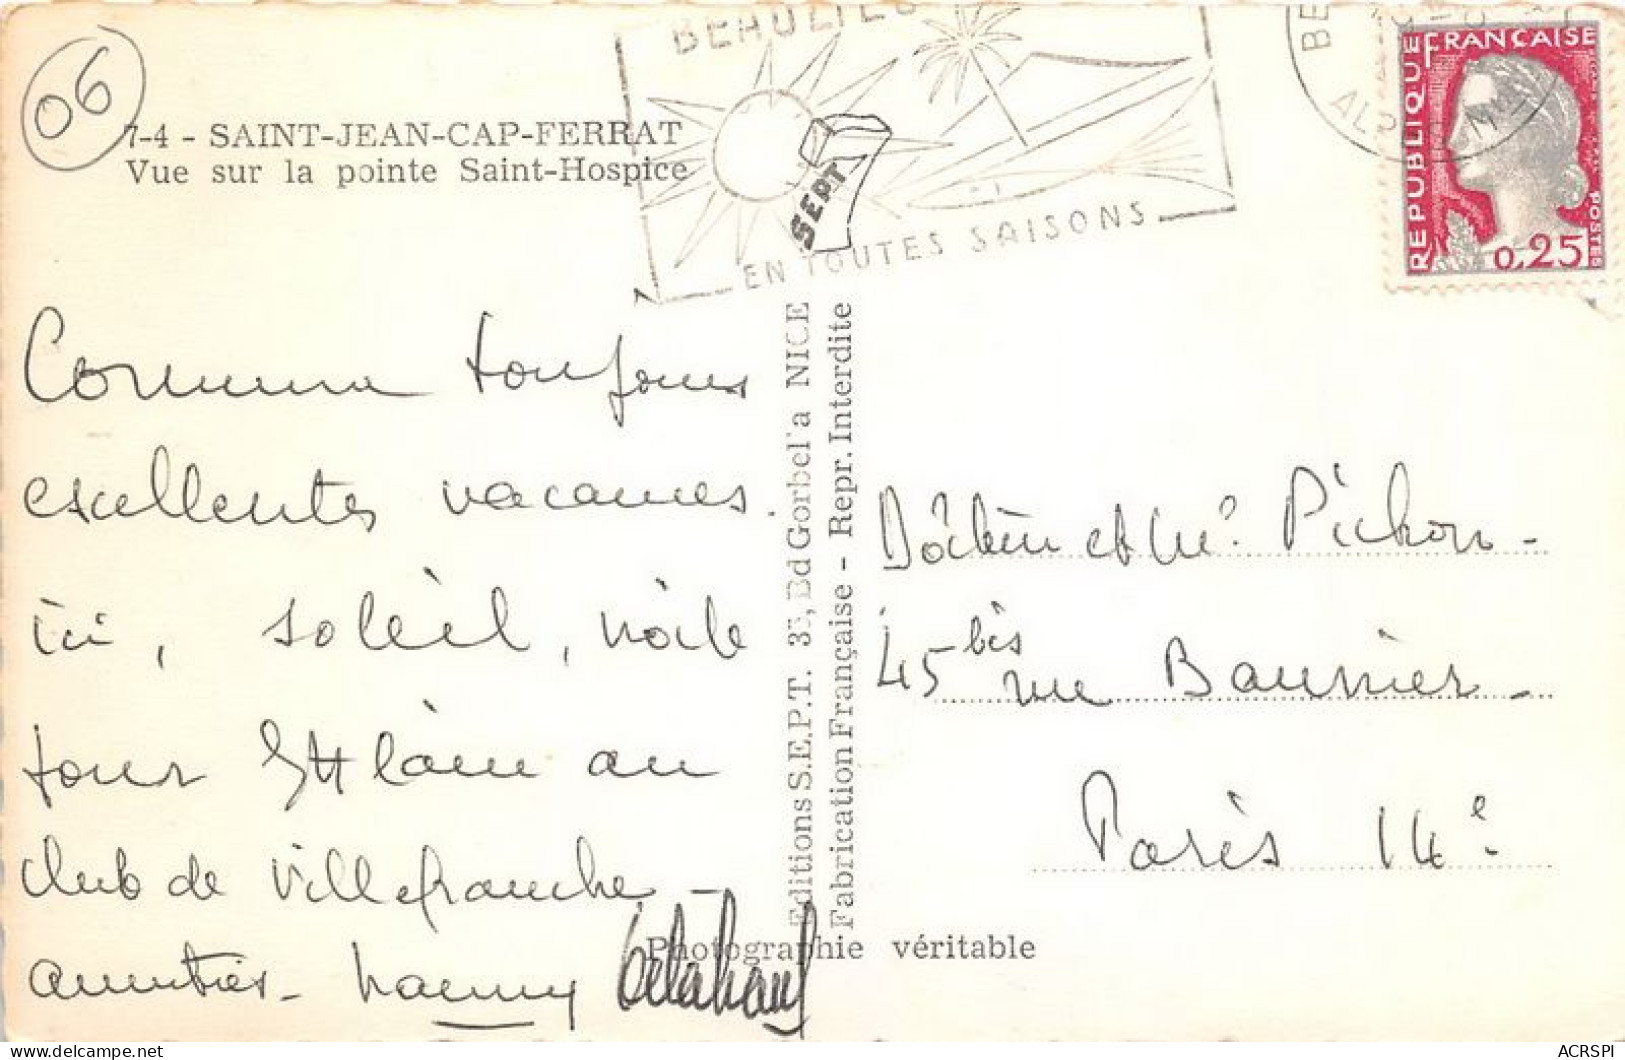 06
7-4 - SAINT-JEAN-CAP-FERRAT
Vue sur la pointe Saint-Hospice
BEAULIEU
SEPT
EN TOUTES SAISONS
BE
AL
M
REPUBLIQUE FRANÇAISE
POSTES
0,25
Comme toujours
excellentes vacances.
ici, soleil, voile
pour Ghislaine au
club de Villefranche -
amitiés - Nanny
Editions S.E.P.T. 35, Bd Gorbella NICE
Fabrication Française - Repr. Interdite
Photographie véritable
Docteur et Me. Pichon -
45 bis rue Baunier -
Paris 14e.
ACRSPI